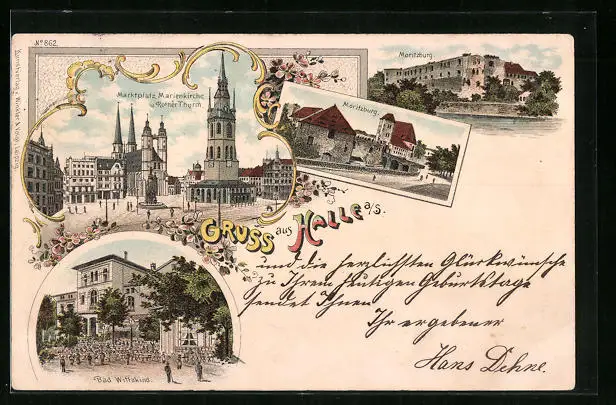 No 862.
Moritzburg.
Marktplatz, Marienkirche
u. Rother Thurm.
Moritzburg.
Gruss aus Halle a/S.
und die herzlichsten Glückwünsche
zu Ihrem heutigen Geburtstage
sendet Ihnen
Ihr ergebener
Hans Dehne.
Bad Wittekind.